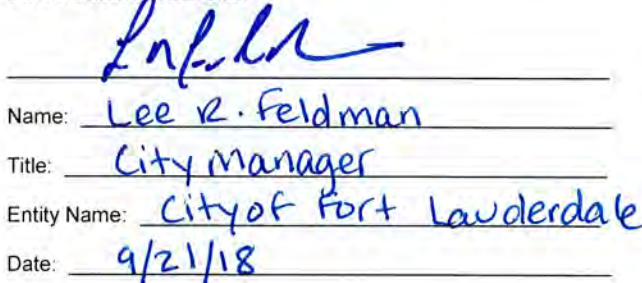 Name: Lee R. Feldman
Title: City Manager
Entity Name: City of Fort Lauderdale
Date: 9/21/18